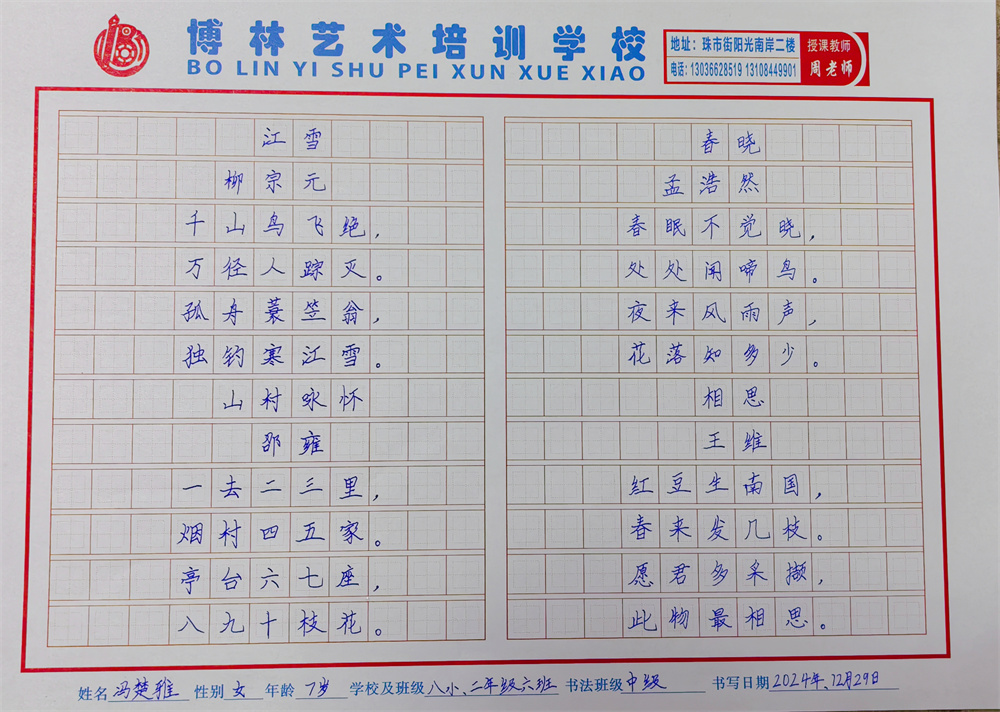 博林艺术培训学校
BO LIN YI SHU PEI XUN XUE XIAO
地址：珠市街阳光南岸二楼
电话：13036628519 13108449901
授课教师
周老师
江雪
柳宗元
千山鸟飞绝，
万径人踪灭。
孤舟蓑笠翁，
独钓寒江雪。
山村咏怀
邵雍
一去二三里，
烟村四五家。
亭台六七座，
八九十枝花。
春晓
孟浩然
春眠不觉晓，
处处闻啼鸟。
夜来风雨声，
花落知多少。
相思
王维
红豆生南国，
春来发几枝。
愿君多采撷，
此物最相思。
姓名 冯楚雅 性别 女 年龄 7岁 学校及班级 八小、二年级六班 书法班级 中级 书写日期 2024年、12月29日